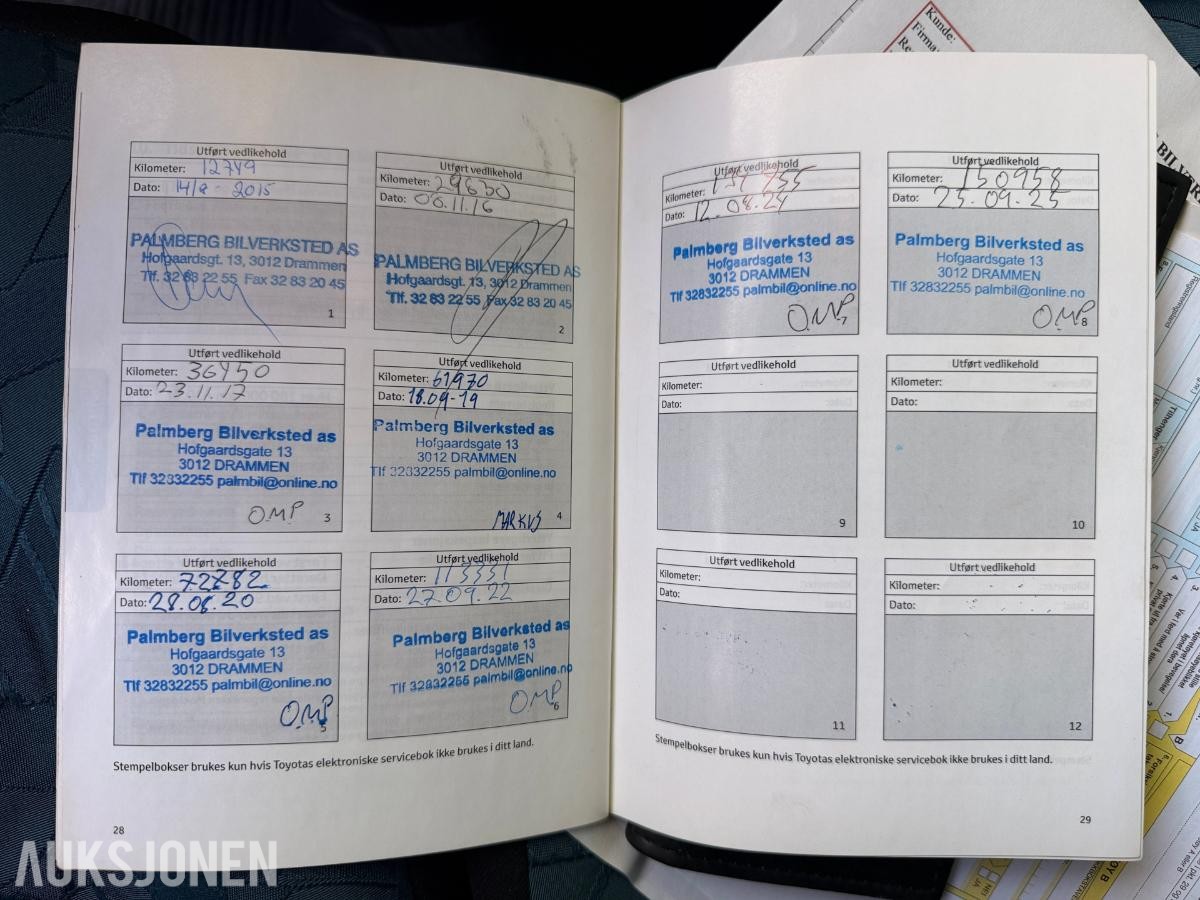 Utført vedlikehold
Kilometer: 12749
Dato: 14/8 - 2015
PALMBERG BILVERKSTED AS
Hofgaardsgt. 13, 3012 Drammen
Tlf. 32 83 22 55 Fax 32 83 20 45
1
Utført vedlikehold
Kilometer: 29630
Dato: 06.11.16
PALMBERG BILVERKSTED AS
Hofgaardsgt. 13, 3012 Drammen
Tlf. 32 83 22 55 Fax 32 83 20 45
2
Utført vedlikehold
Kilometer: 36450
Dato: 23.11.17
Palmberg Bilverksted as
Hofgaardsgate 13
3012 DRAMMEN
Tlf 32832255 palmbil@online.no
OMP 3
Utført vedlikehold
Kilometer: 61970
Dato: 18.09-19
Palmberg Bilverksted as
Hofgaardsgate 13
3012 DRAMMEN
Tlf 32832255 palmbil@online.no
MARKUS 4
Utført vedlikehold
Kilometer: 72782
Dato: 28.08.20
Palmberg Bilverksted as
Hofgaardsgate 13
3012 DRAMMEN
Tlf 32832255 palmbil@online.no
OMP 5
Utført vedlikehold
Kilometer:
Dato: 27.09.22
Palmberg Bilverksted as
Hofgaardsgate 13
3012 DRAMMEN
Tlf 32832255 palmbil@online.no
OMP 6
Stempelbokser brukes kun hvis Toyotas elektroniske servicebok ikke brukes i ditt land.
28
Utført vedlikehold
Kilometer:
Dato: 12.08.24
Palmberg Bilverksted as
Hofgaardsgate 13
3012 DRAMMEN
Tlf 32832255 palmbil@online.no
OMP 7
Utført vedlikehold
Kilometer: 150958
Dato: 25.09.25
Palmberg Bilverksted as
Hofgaardsgate 13
3012 DRAMMEN
Tlf 32832255 palmbil@online.no
OMP 8
Utført vedlikehold
Kilometer:
Dato:
9
Utført vedlikehold
Kilometer:
Dato:
10
Utført vedlikehold
Kilometer:
Dato:
11
Utført vedlikehold
Kilometer:
Dato:
12
Stempelbokser brukes kun hvis Toyotas elektroniske servicebok ikke brukes i ditt land.
29
Kunde:
Firma:
Tilhenger
AUKSJONEN